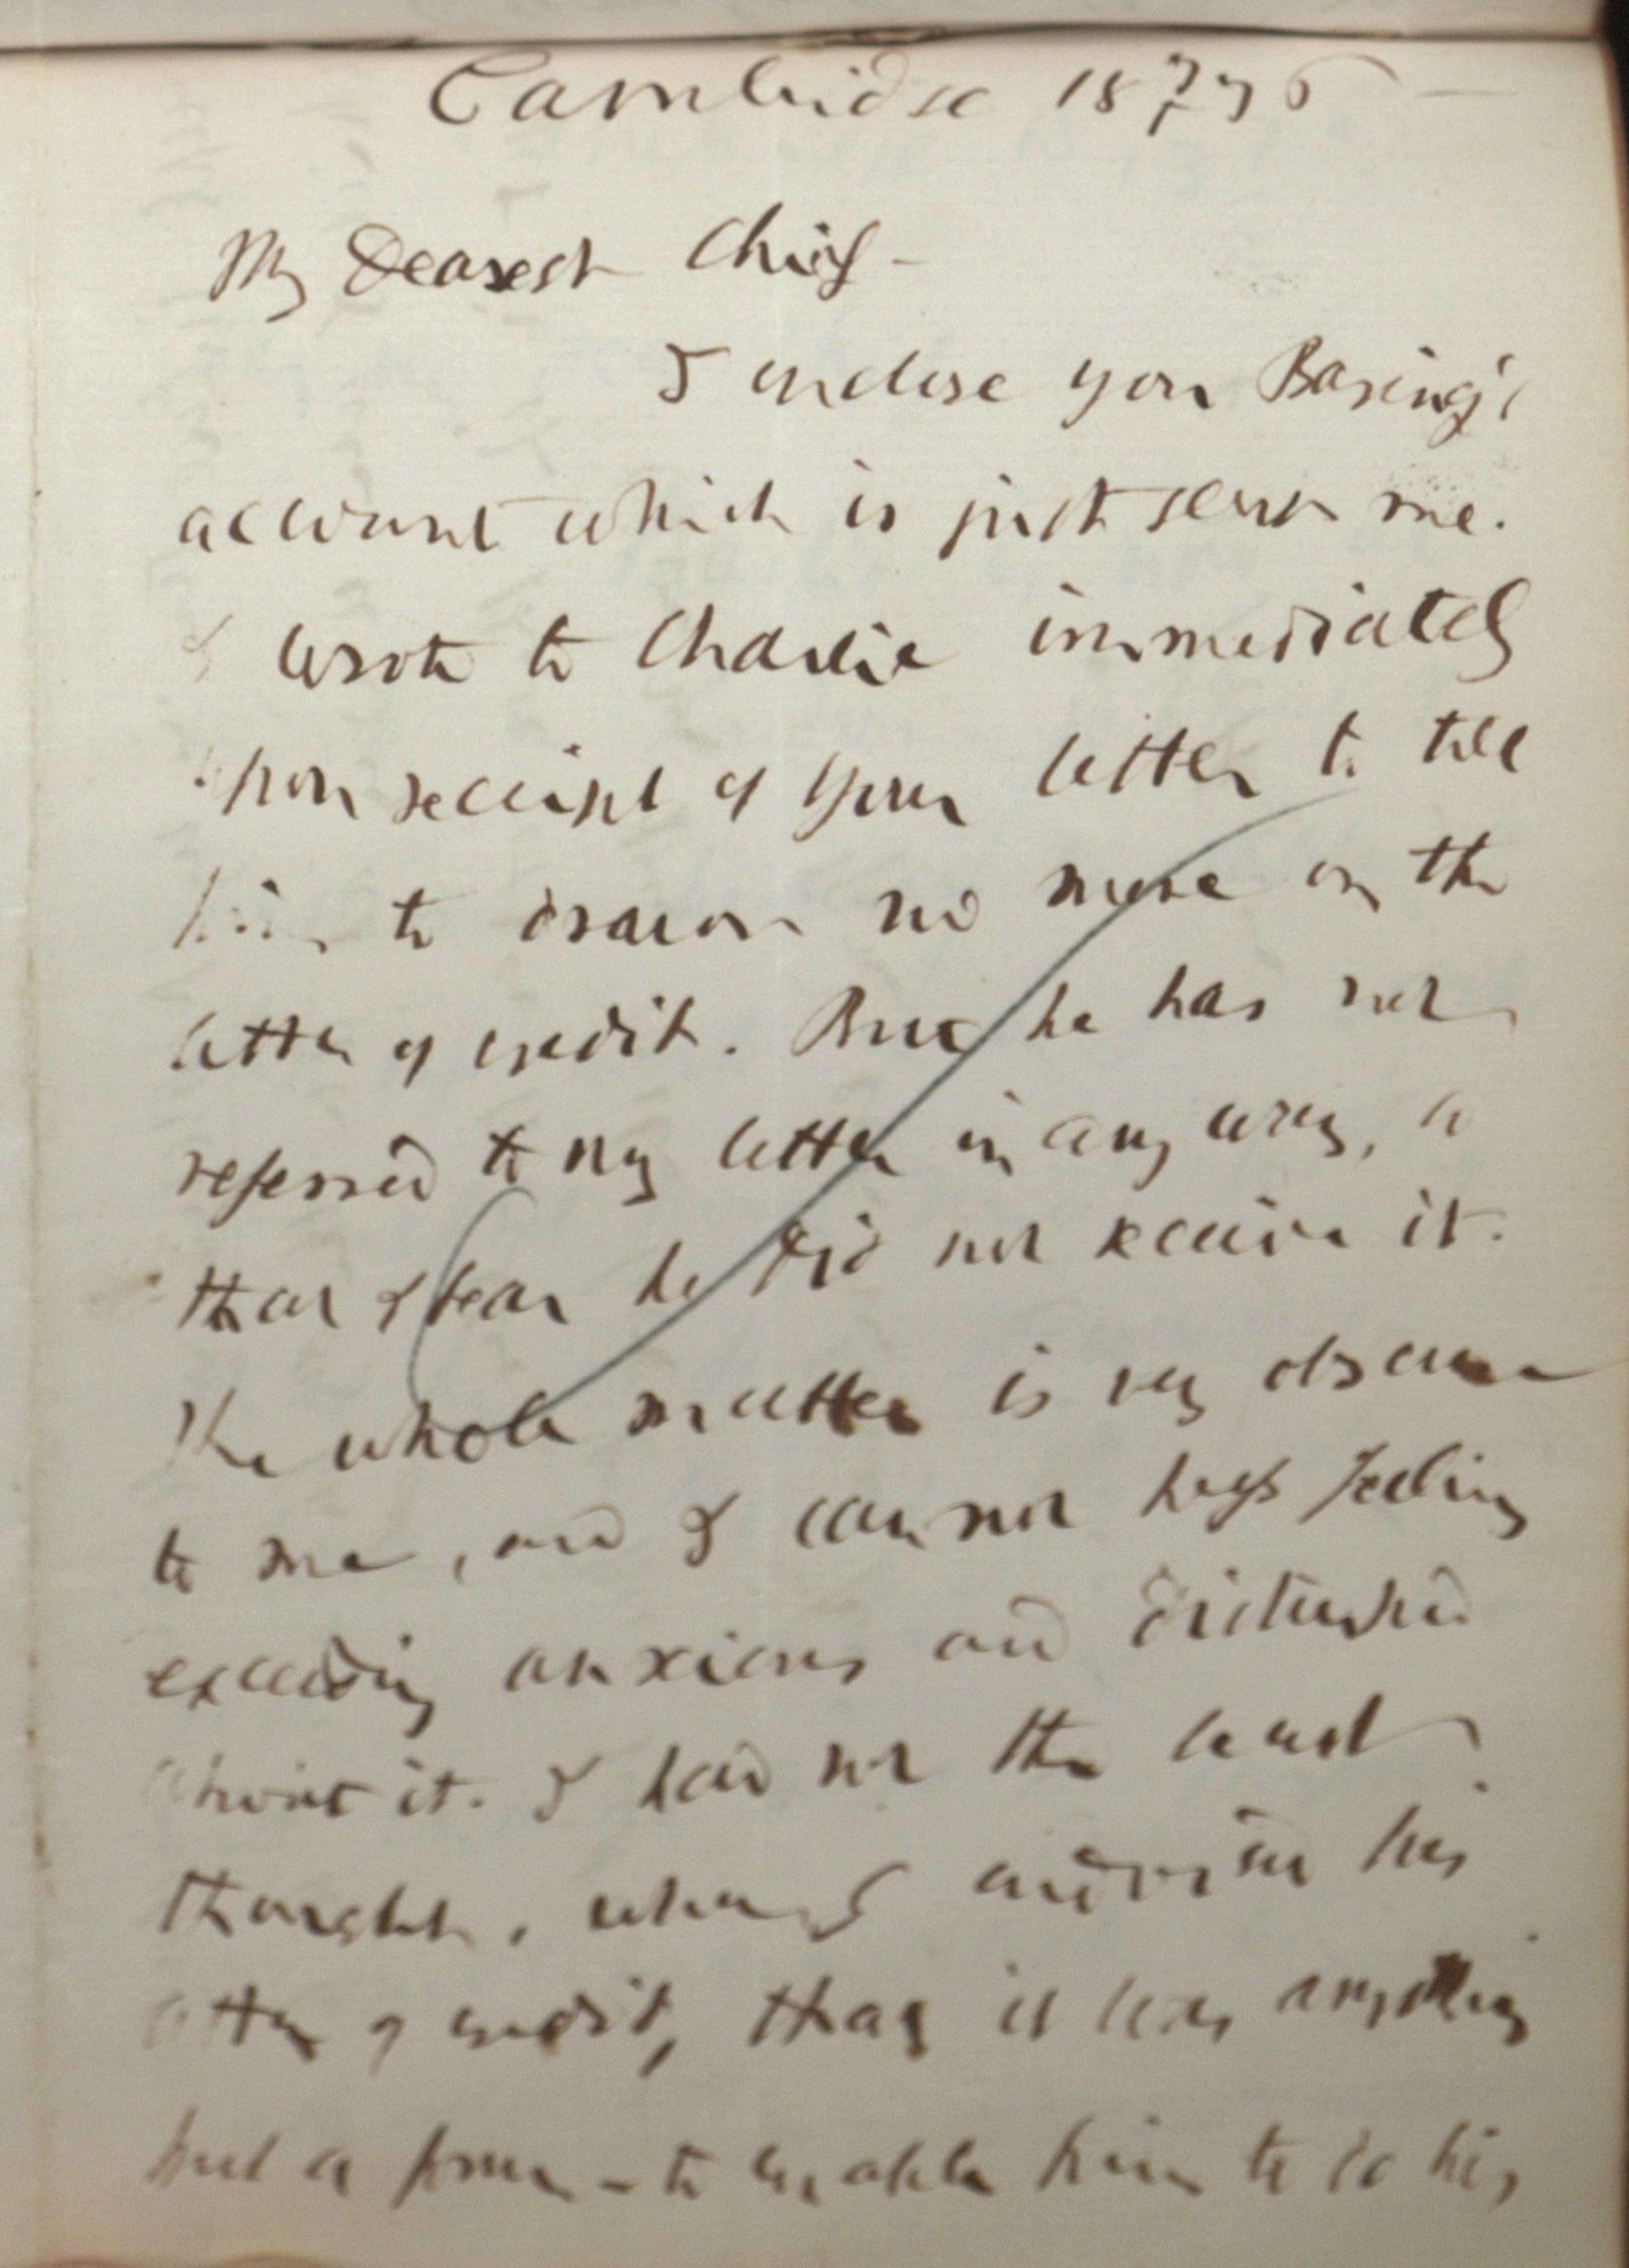 Cambridge 18
My Dearest Chief -
I enclose you Baring's
account which is just sent me.
I wrote to Charlie immediately
upon receipt of your letter to tell
him to draw no more on the
letter of credit. But he has not
referred to my letter in any way, so
that I fear he did not receive it.
The whole matter is very obscure
to me, and I cannot help feeling
exceeding anxious and disturbed
about it. I had not the least
thought, when I advised his
letter of credit, that it was anything
but a form - to enable him to do his